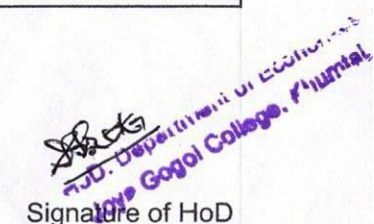 HoD. Department of Economics
Gogoi College, Khumtai
Signature of HoD